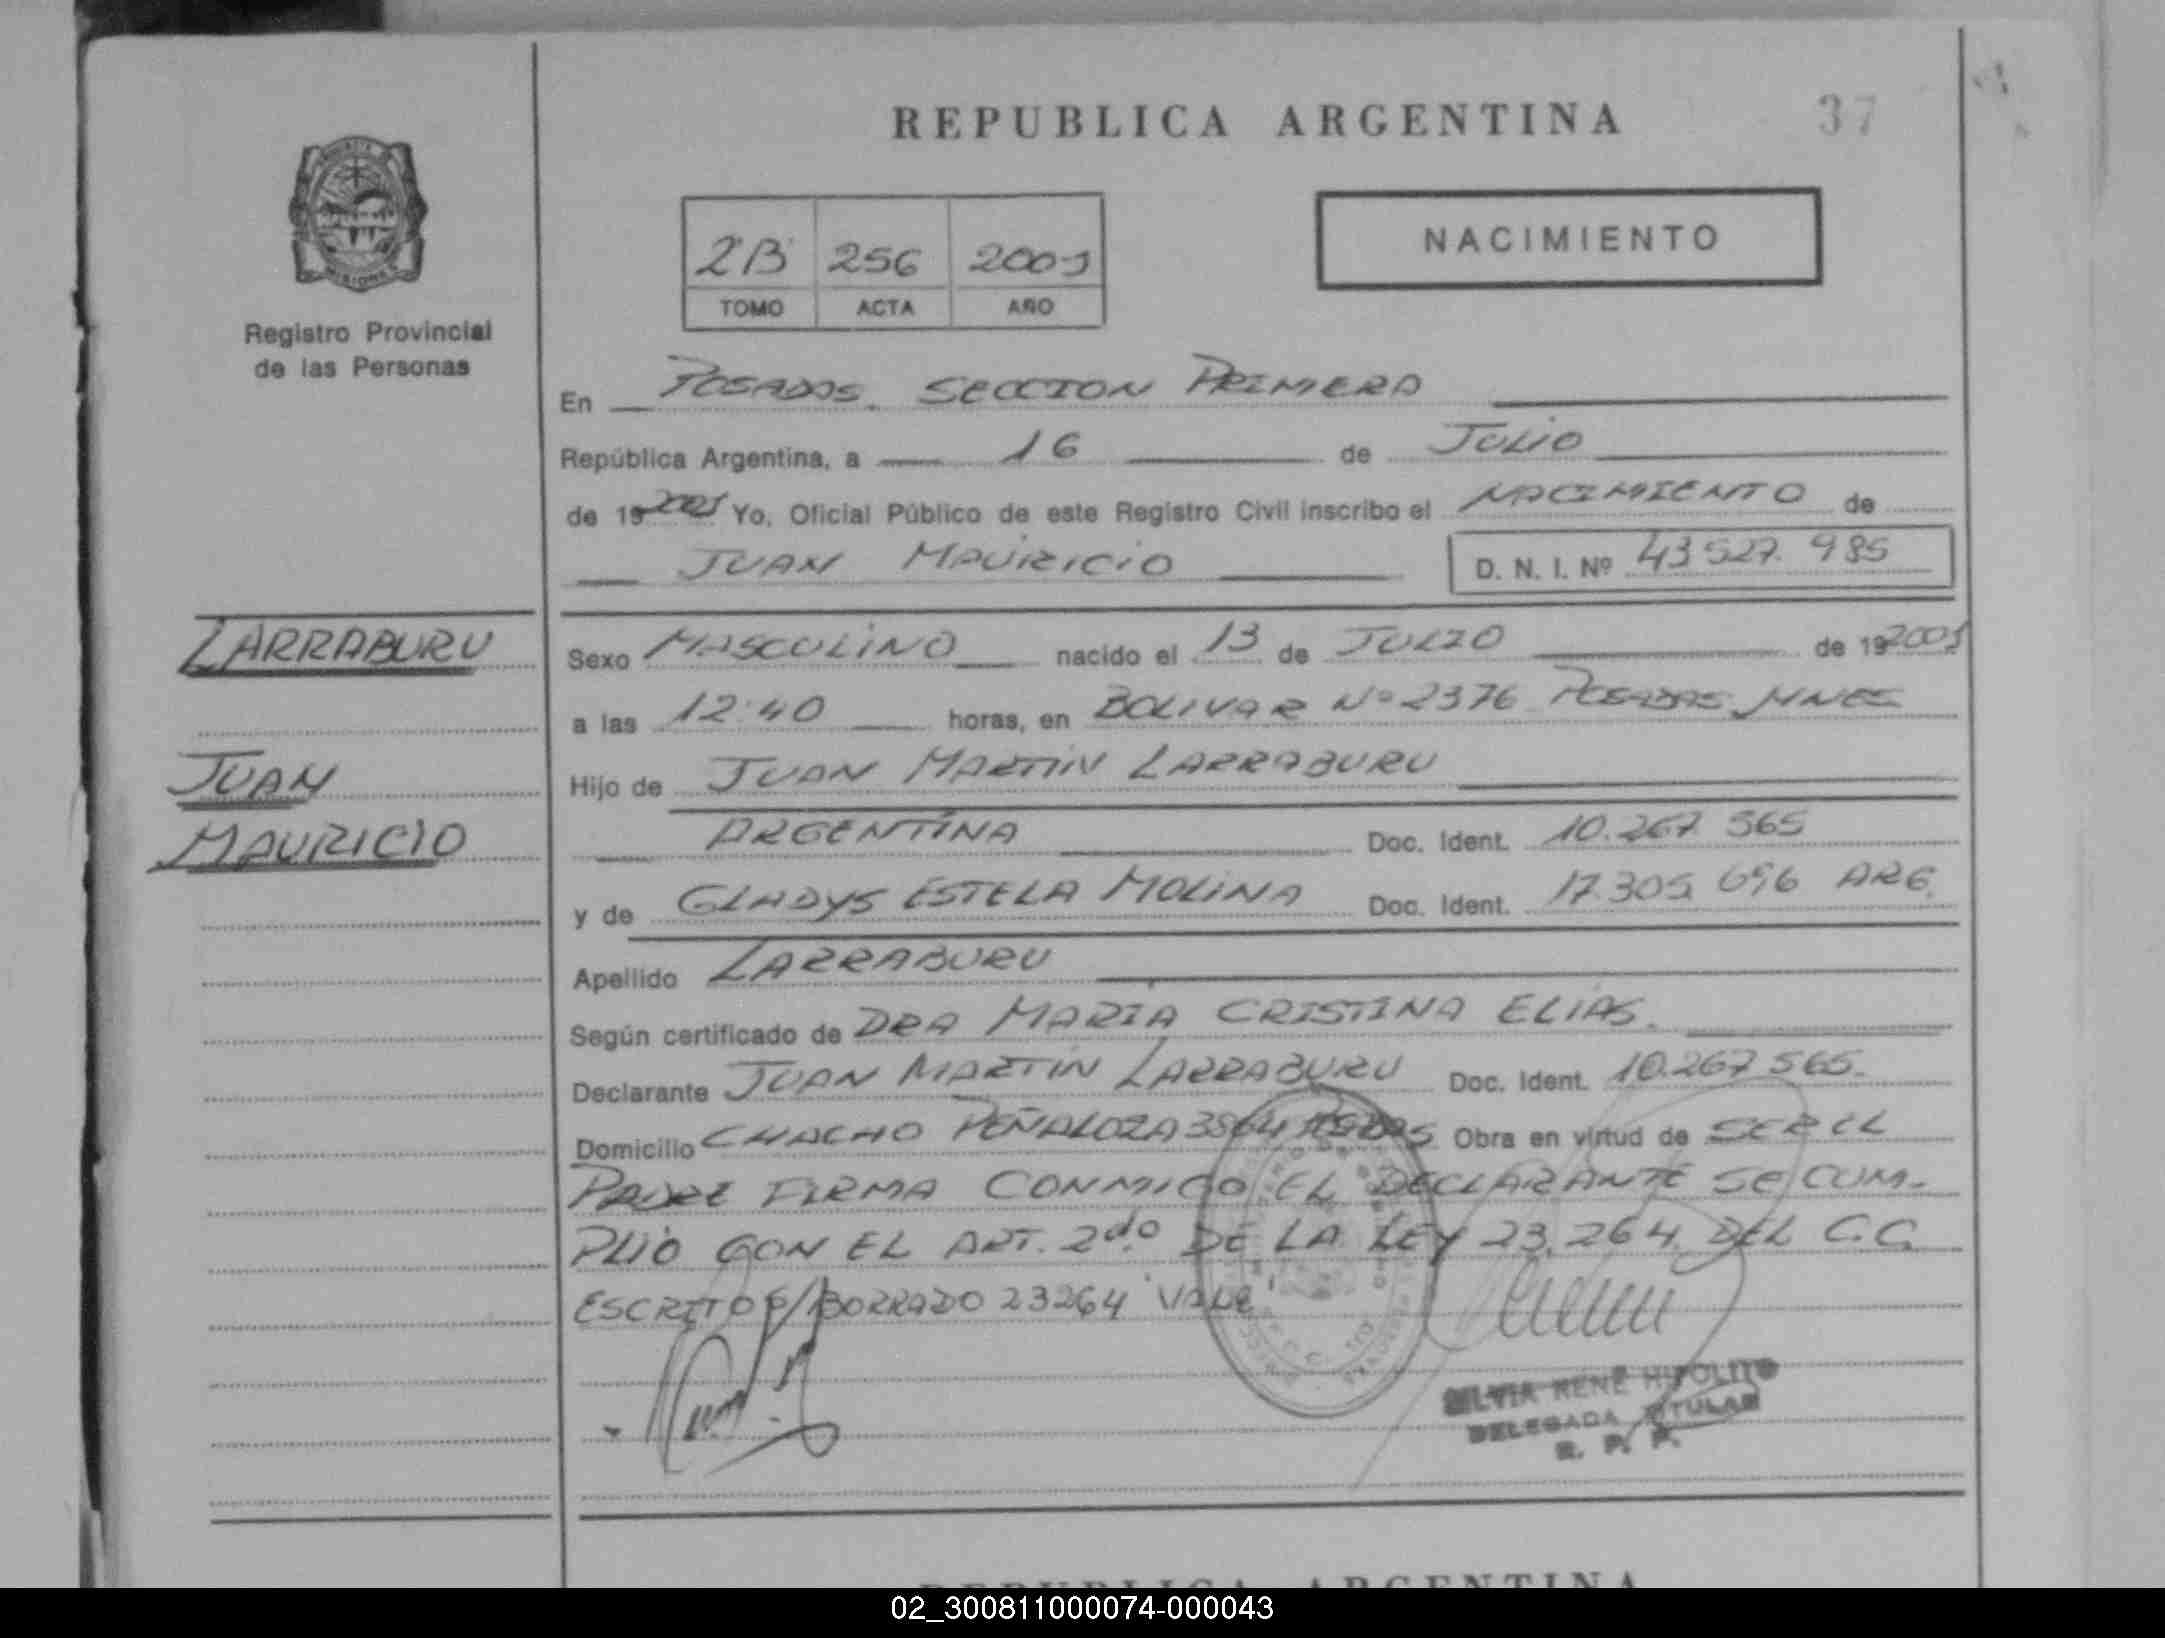 REPUBLICA ARGENTINA
37
MISIONES
Registro Provincial
de las Personas
2B 256 2001
TOMO ACTA AÑO
NACIMIENTO
En POSADAS. SECCION PRIMERA
República Argentina, a 16 de JULIO
de 19 2001 Yo, Oficial Público de este Registro Civil inscribo el NACIMIENTO de
JUAN MAURICIO D. N. I. Nº 43 527. 985
LARRABURU
JUAN
MAURICIO
Sexo MASCULINO nacido el 13 de JULIO de 19 2001
a las 12:40 horas, en BOLIVAR Nº 2376 POSADAS MNES
Hijo de JUAN MARTIN LARRABURU
ARGENTINA Doc. Ident. 10.267 565
y de GLADYS ESTELA MOLINA Doc. Ident. 17.305 696 ARG.
Apellido LARRABURU
Según certificado de DRA MARIA CRISTINA ELIAS.
Declarante JUAN MARTIN LARRABURU Doc. Ident. 10.267 565.
Domicilio CHACHO PEÑALOZA 3564 Obra en virtud de SER EL
PADRE FIRMA CONMIGO EL DECLARANTE SE CUM-
PLIÓ CON EL ART. 2do DE LA LEY 23.264. DEL C.C.
ESCRITO S/BORRADO 23264 'VALE'
SILVIA RENÉ HIPOLITO
DELEGADA TITULAR
R. P. P.
REPUBLICA ARGENTINA
02_300811000074-000043